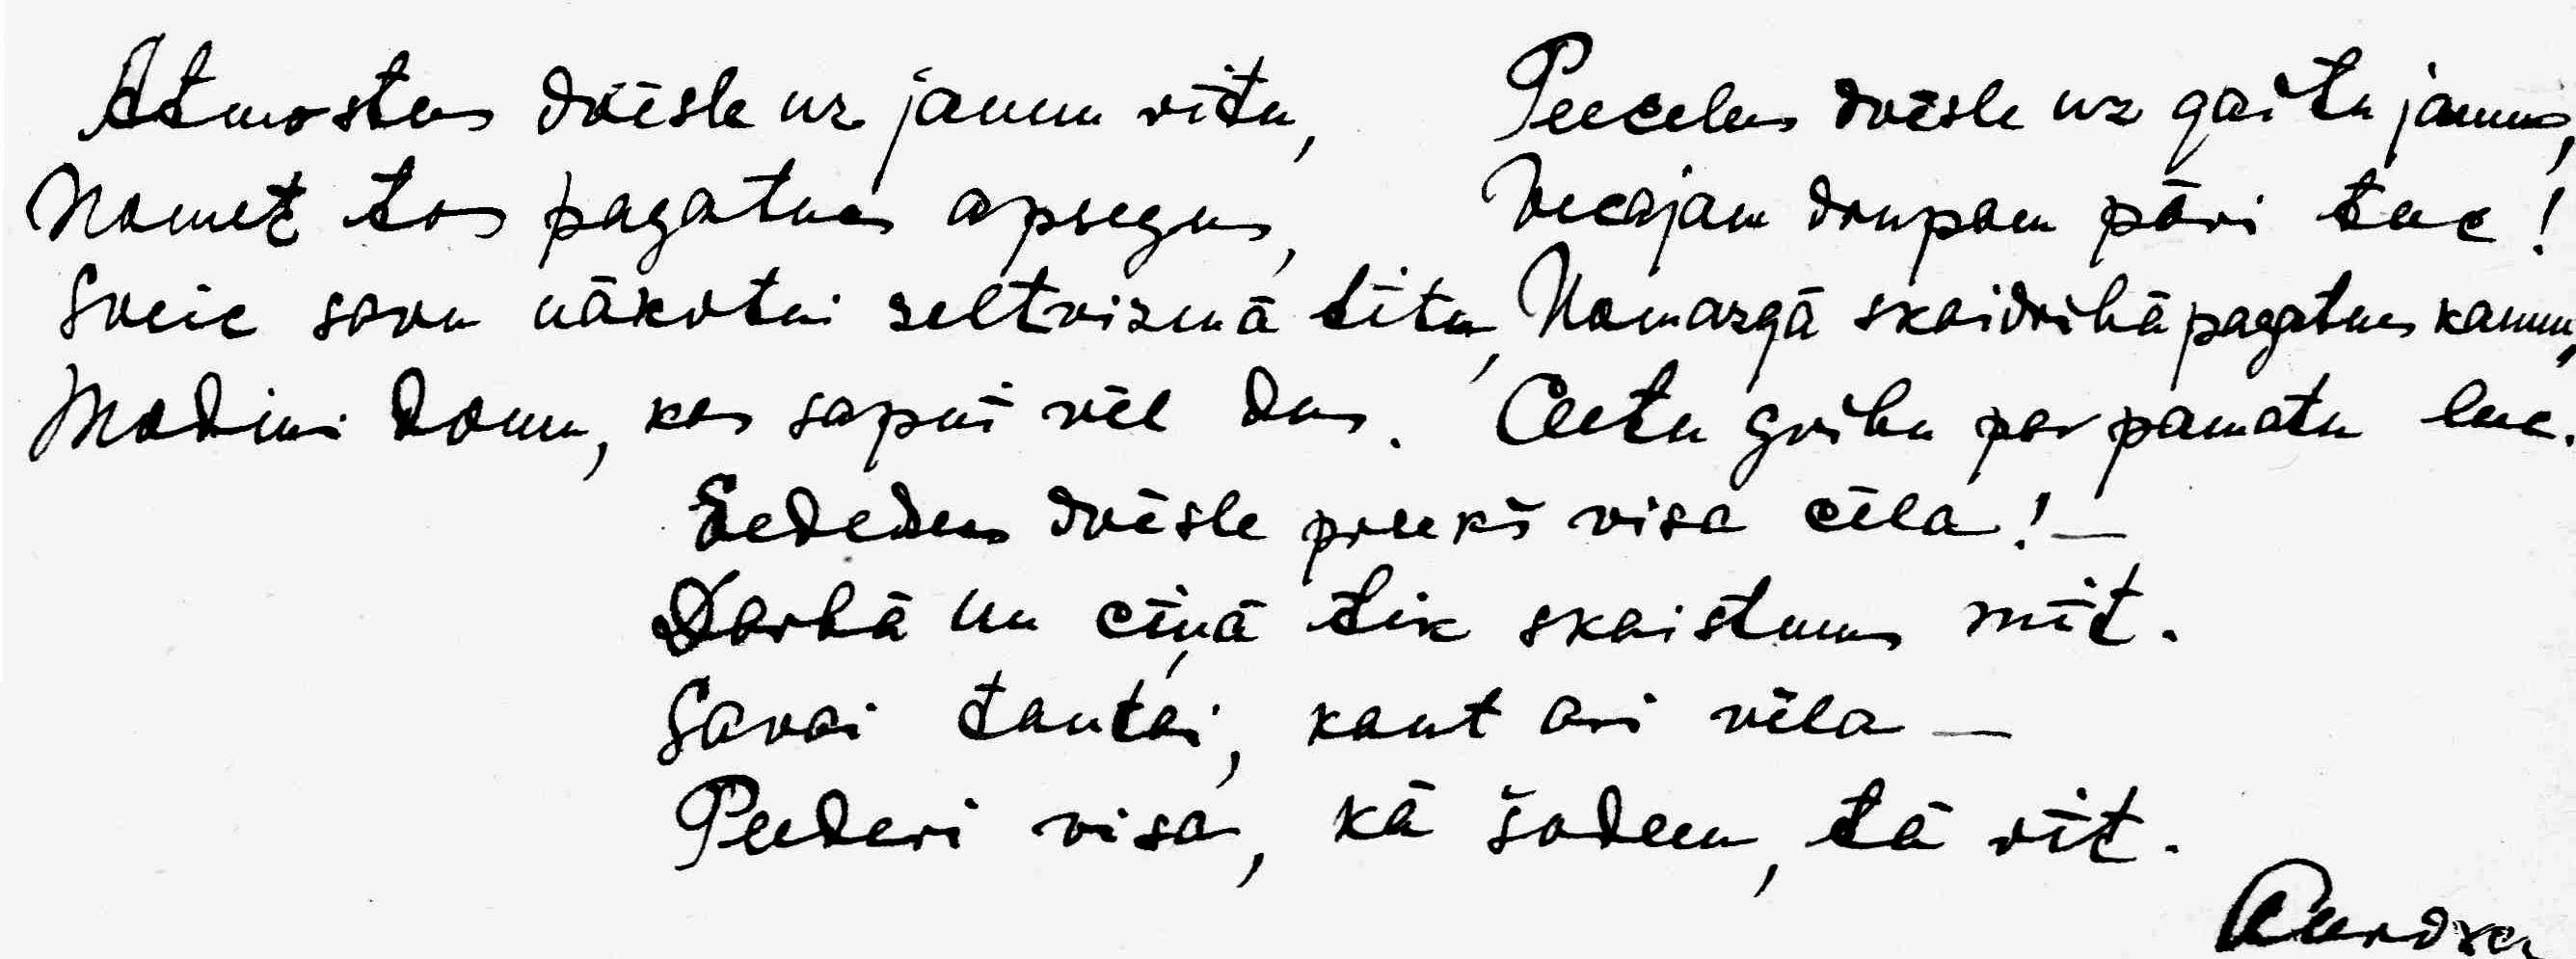 Atmostas dvēsle uz jaunu ritu,
Nomet tos pagatnes apsegus,
Sveic savu nākotni zeltvizmā tītu,
Modini domu, kas sapnī vēl dus.
Peecelas dvēsle uz gaitu jaunu,
Vecajam drupam pāri tec!
Nomazgā skaidrībā pagatnes kaunu,
Ceetu gribu par pamatu lec.
Eededzes dvēsle preekš visa cēla! —
Darbā un cīņā tik skaistums mīt.
Savai tautai, kaut ari vēla —
Peederi visa, kā šodeen, tā rīt.